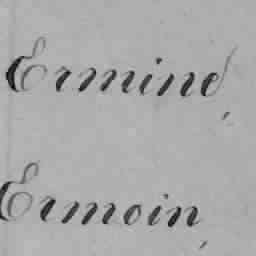 Erminé,
Ermoin,